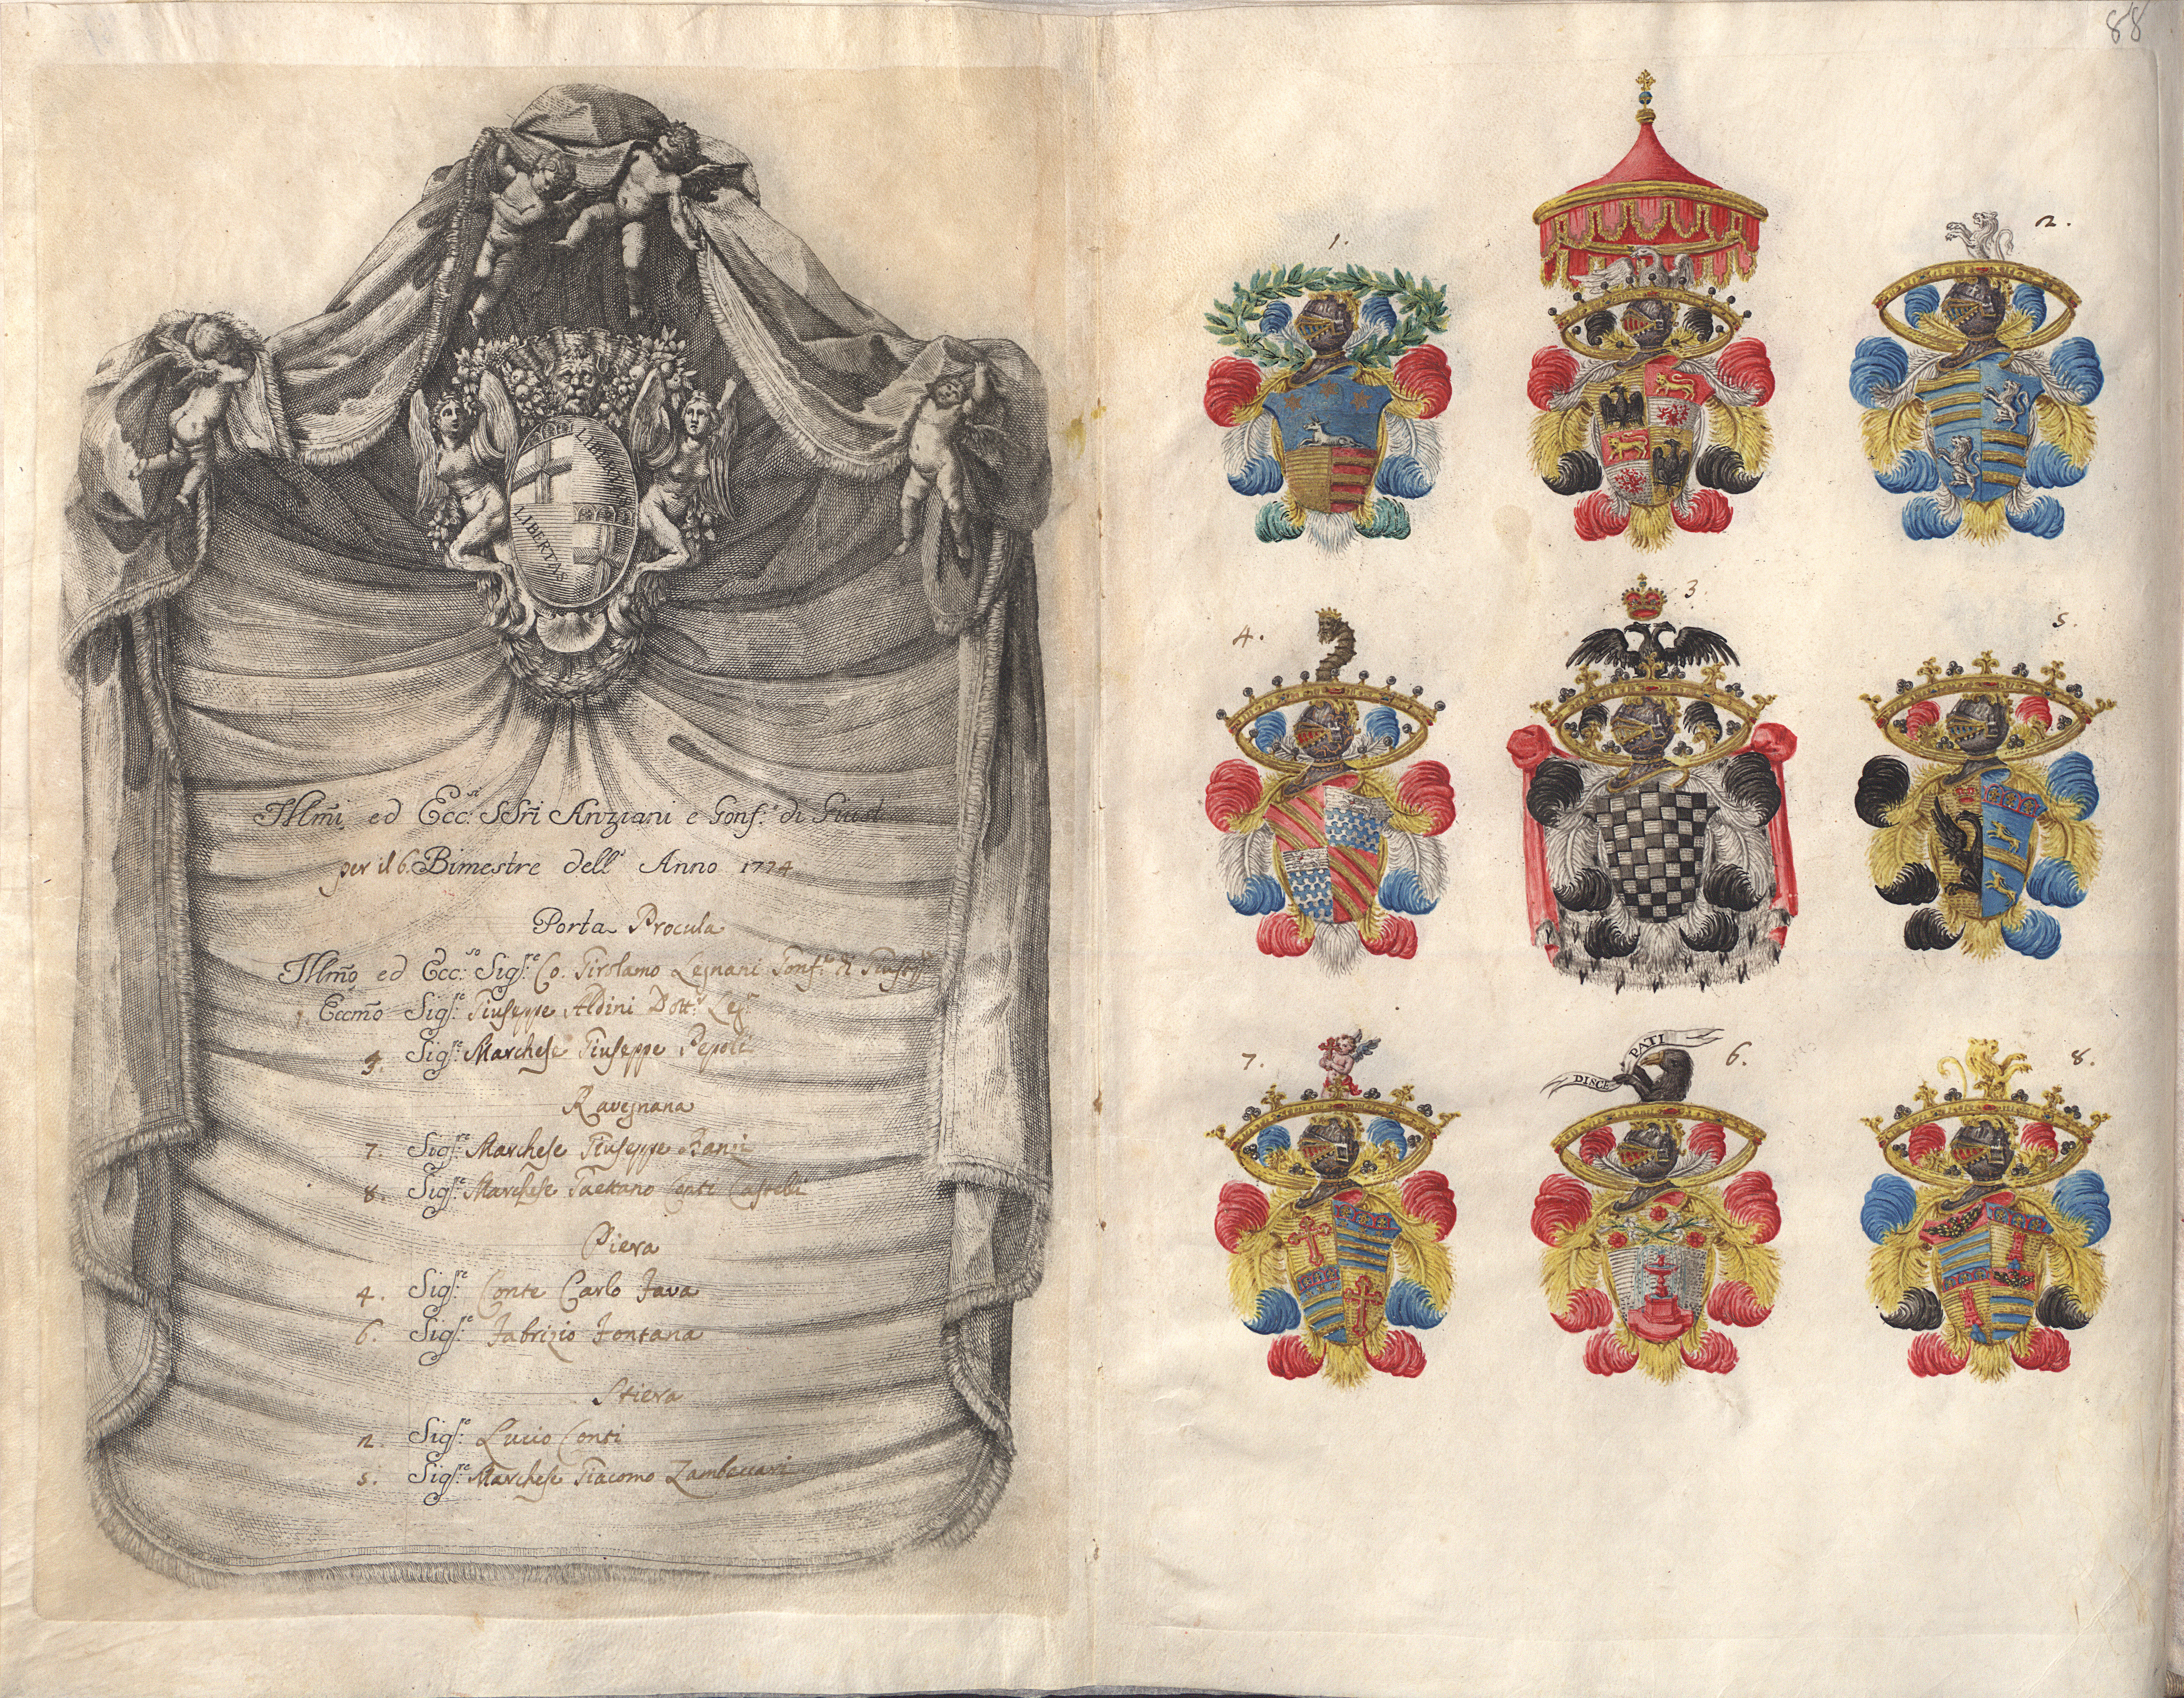 88
LIBERTAS
LIBERTAS
Illm̃i ed Ecc.si SSr̃i Anziani e Gonf.i di Giust.
per il 6. Bimestre dell' Anno 1774
Porta Procula
Illmõ ed Ecc.so Sigr.e Co. Girolamo Legnani Gonf.re di
1. Eccmõ Sigr.e Giuseppe Aldini Dott.r Leg.
3. Sigr.e Marchese Giuseppe Pepoli
Ravegnana
7. Sigr.e Marchese Giuseppe
8. Sigr.e Marchese Gaetano Conti Castelli
Piera
4. Sigr.e Conte Carlo Fava
6. Sigr.e Fabrizio Fontana
Stiera
2. Sigr.e Lucio Conti
5. Sigr.e Marchese Giacomo Zambeccari
1.
2.
4.
3.
5.
7.
DISCE PATI
6.
8.